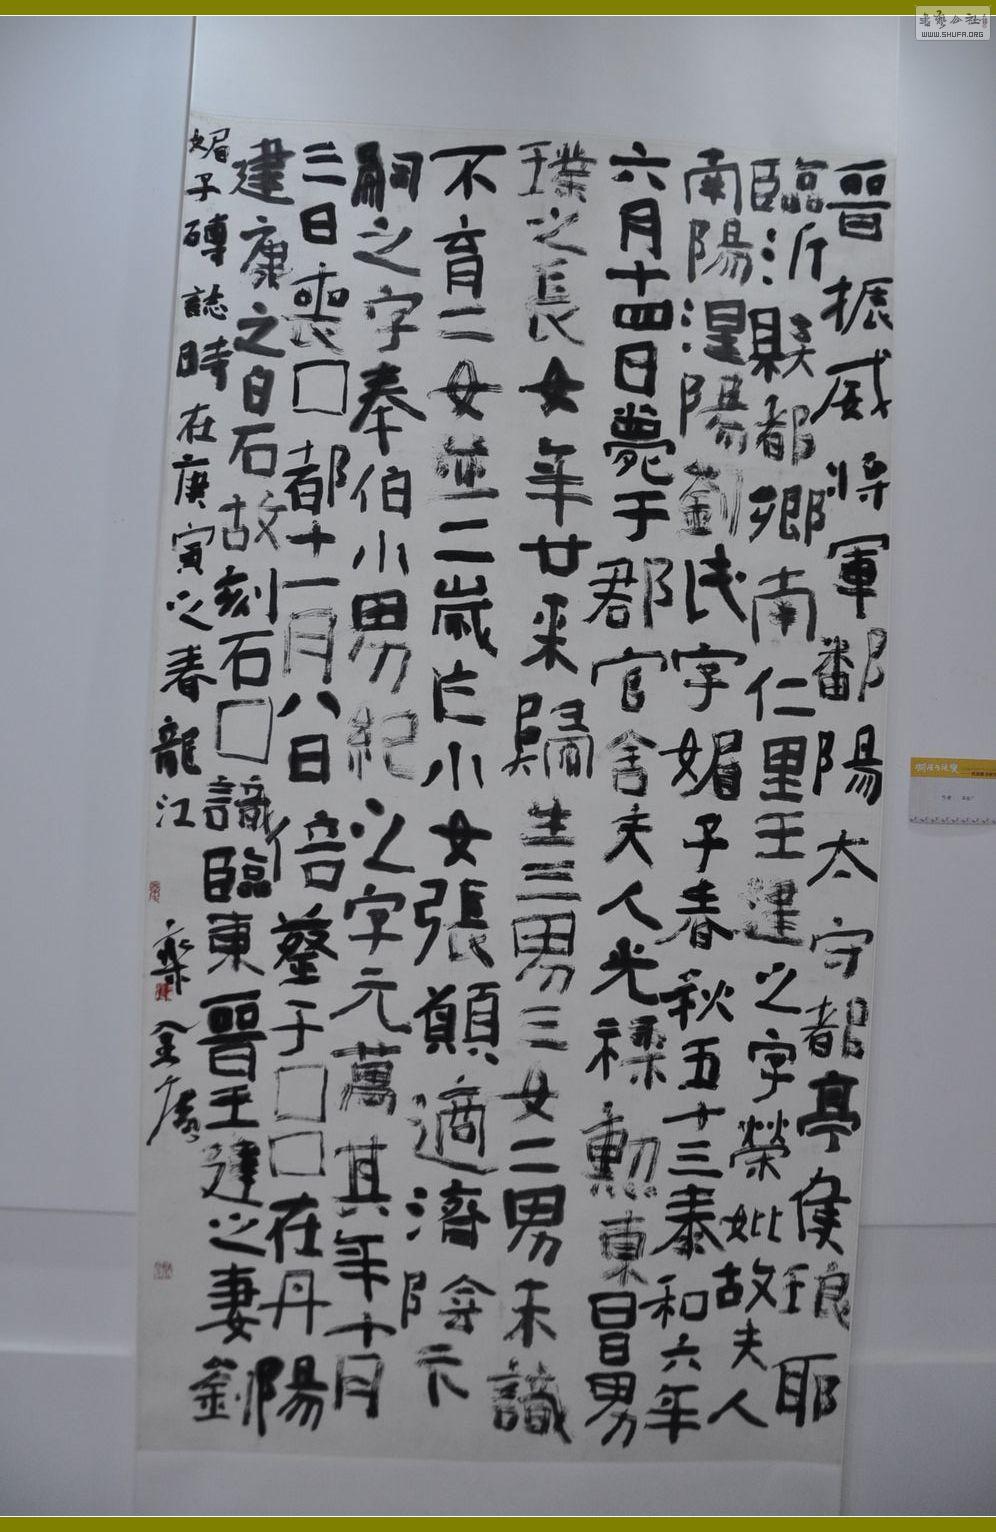 晉振威將軍鄱陽太守都亭侯琅耶
臨沂縣都鄉南仁里王建之字榮妣故夫人
南陽涅陽劉氏字媚子春秋五十三泰和六年
六月十四日薨于郡官舍夫人光祿勳東昌男
璞之長女年廿来歸生三男三女二男未識
不育二女並二歲亡小女張願適濟陰卞
嗣之字奉伯小男紀之字元萬其年十月
三日喪□都十一月八日倍葬于□□在丹陽
建康之白石故刻石□識臨東晉王建之妻劉
媚子磚誌時在庚寅之春龍江
WWW.SHUFA.ORG